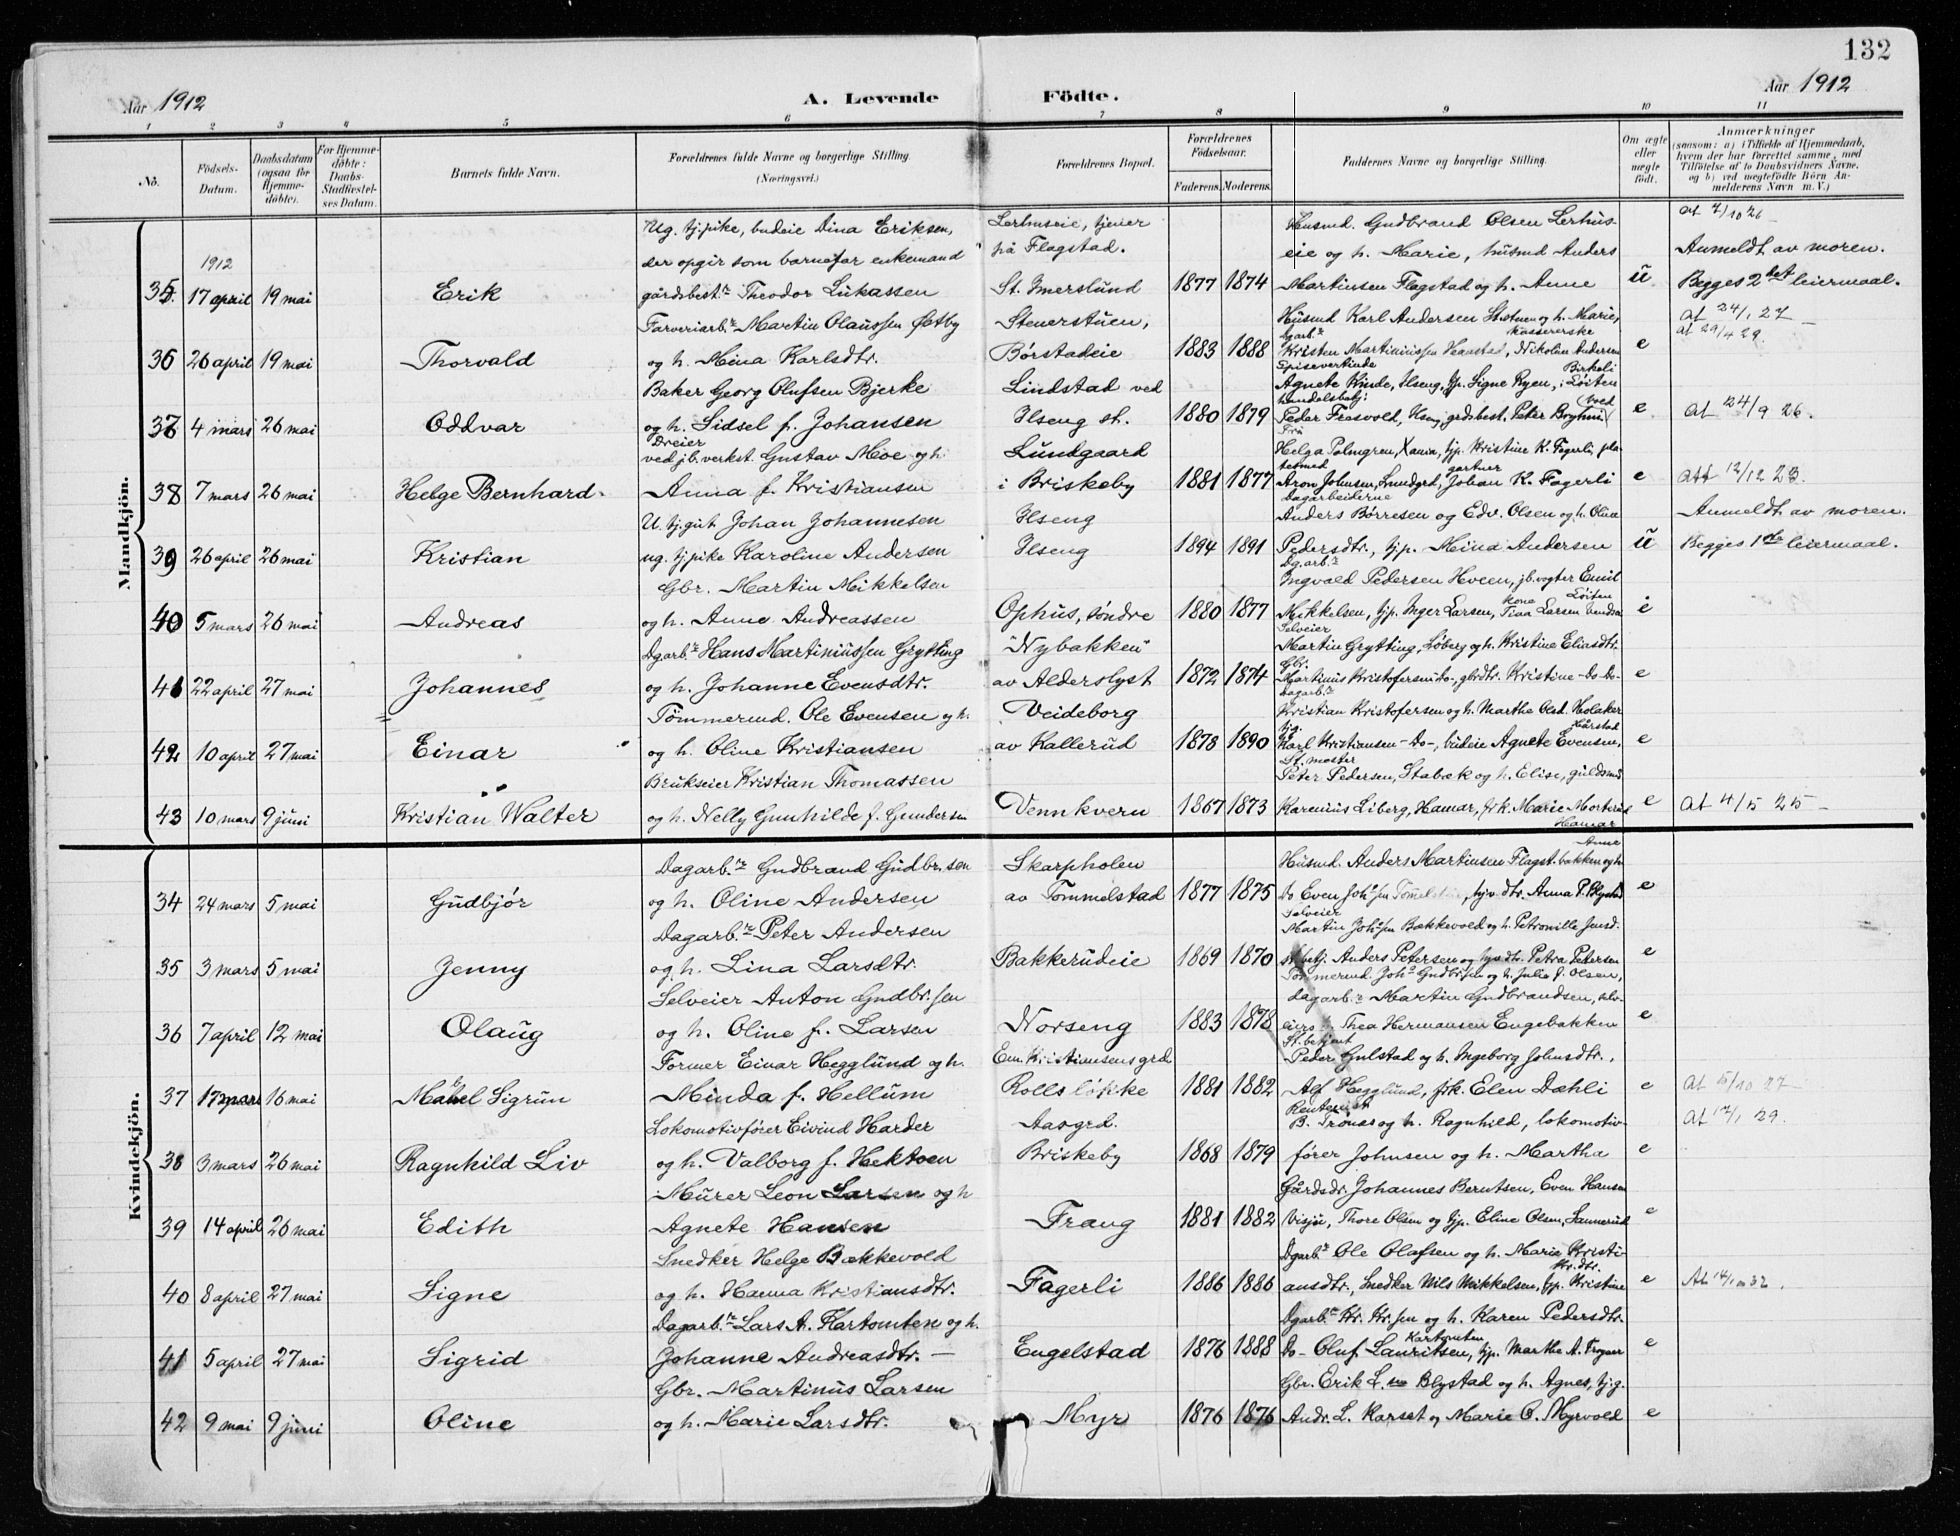 132
Aar 1912 A. Levende Födte. Aar 1912
1 2 3 4 5 6 7 8 9 10 11
No. Födsels-Datum. Daabsdatum (ogsaa for Hjemme-döbte). For Hjemme-döbte: Daabs-Stadfæstel-ses Datum. Barnets fulde Navn. Forældrenes fulde Navne og borgerlige Stilling. (Næringsvei.) Forældrenes Bopæl. Forældrenes Födselsaar. Faderens. Moderens. Faddernes Navne og borgerlige Stilling. Om ægte eller uægte födt. Anmærkninger (saasom: a) i Tilfælde af Hjemmedaab, hvem der har forrettet samme, med Tilföielse af to Daabsvidners Navne, og b) ved uægtefödte Börn Anmelderens Navn m. V.)
Mandkjön.
Ug. tj.pike, budeie Dina Eriksen, Lerhuseie, tjener Husmd. Gudbrand Olsen Lerhus- at 7/10 26
1912 der opgir som barnefar enkemand på Flagstad. eie og h. Marie, husmd Anders Anmeldt av moren.
35. 17 april 19 mai Erik gårdbest.r Theodor Lukassen St. Imerslund 1877 1874 Martinsen Flagstad og h. Anne u Begges 2det leiermaal.
Farveriarb.r Martin Olaussen Østby Stenerstuen, Husmd Karl Andersen St.stuen og h. Marie, at 24/1 27
36 26 april 19 mai Thorvald og h. Mina Karlsdtr. Børstadeie 1883 1888 Kristen Martiniussen Haastad, Nikoline Andersen e at 29/4 29.
Baker Georg Olufsen Bjerke Lindstad ved Agnete Kinde, Ilseng, tjp. Signe Ryen, i Løiten
37 4 mars 26 mai Oddvar og h. Sidsel f. Johansen Ilseng st. 1880 1879 Peder Frasvold, Ilseng, grdbest. Peter Boghus e at 24/9 26.
Dreier ved jb. verkst. Gustav Moe og h. Lundgaard Helga Palmgren, Xania, tjp. Kristine K. Fagerli, pla-
38 7 mars 26 mai Helge Bernhard. Anna f. Kristiansen i Briskeby 1881 1877 Aron Johnsen, Lundgrd, Johan K. Fagerli e att 12/12 28.
U. tj.gut Johan Johannesen Ilseng Anders Børresen og Edv. Olsen og h. Olina Anmeldt av moren.
39 26 april 26 mai Kristian ug. tj.pike Karoline Andersen Ilseng 1894 1891 Pedersdtr., tjp. Mina Andersen u Begges 1ste leiermaal.
Gbr. Martin Mikkelsen Ingvald Pedersen Hveen, jb.vogter Emil
40 5 mars 26 mai Andreas og h. Anne Andreassen Ophus, søndre 1880 1877 Mikkelsen, tjp. Inger Larsen, Tina Larsen e
Dgarb.r Hans Martiniussen Grytting "Nybakken" Martin Grytting, Løberg og h. Kristine Eliasdtr.
41 22 april 27 mai Johannes og h. Johanne Evensdtr. av Alderslyst 1872 1874 Martinus Kristofersen -do-, gbrdtr. Kristine -do-do- e
Tømmermd. Ole Evensen og h. Veideborg Kristian Kristofersen og h. Marthe Olsd. Holaker
42 10 april 27 mai Einar og h. Oline Kristiansen av Kallerud 1878 1890 Karl Kristiansen -Do-, budeie Agnete Evensen, e
Brukseier Kristian Thomassen Peter Pedersen, Stabæk og h. Elise, guldsmd
43 10 mars 9 juni Kristian Walter og h. Nelly Gunhilde f. Gundersen Vennkvern 1867 1873 Karenius Liberg, Hamar, frk. Marie e at 4/5 25
Hamar
Kvindekjön.
Dagarb.r Gudbrand Gudbr.sen Skarpholen Husmd. Anders Martinsen Flagst.bakken og h. Anne
34 24 mars 5 mai Gudbjør og h. Oline Andersen av Tommelstad 1877 1875 Do Even Joh.sen e
Dagarb.r Peter Andersen Martin Joh.sen Bækkevold og h. Petronille Jensd.
35 3 mars 5 mai Jenny og h. Lina Larsdtr. Bakkerudeie 1869 1870 Anders Petersen og Petra Petersen e
Selveier Anton Gudbr.sen dagarb.r Martin Gudbrandsen, selv-
36 7 april 12 mai Olaug og h. Oline f. Larsen Norseng 1883 1878 eiers h. Thea Hermansen Engebakken e
Former Einar Hegglund og h. Em. Kristiansens grd St.betjent Peder Gulstad og h. Ingeborg Johnsdtr.,
37 17 mars 16 mai Mabel Sigrun Minda f. Hellum Rolls løkke 1881 1882 Alf Hegglund, frk. Elen Dæhli e at 5/10 27
Lokomotivfører Eivind Harder Aasgrd. B. og h. Ragnhild, lokomotiv- at 12/1 29.
38 3 mars 26 mai Ragnhild Liv og h. Valborg f. Hektoen Briskeby 1868 1879 fører Johnsen og h. Martha e
Murer Leon Larsen og h Gårdsdr. Johannes Berntsen, Even Hansen
39 14 april 26 mai Edith Agnete Hansen Frang 1881 1882 Thore Olsen og tjp. Eline Olsen, Sannerud e
Snedker Helge Bækkevold Dgarb.r Ole Olafsen og h. Marie Kristi-
40 8 april 27 mai Signe og h. Hanna Kristiansdtr. Fagerli 1886 1886 ansdtr., Snedker Nils Mikkelsen, tjp. Kristine e At 14/10 32.
Dagarb.r Lars A. Kartomten og h. Dgarb.r Kr. Kr.sen og h. Karen Pedersdtr.
41 5 april 27 mai Sigrid Johanne Andreasdtr. — Engelstad 1876 1888 Do- Oluf Lauritsen, Kartomten, tjp. Marthe A. e
Gbr. Martinus Larsen Gbr. Erik L. Blystad og h. Agnes, tj.g.
42 9 mai 9 juni Oline og h. Marie Larsdtr. Myr 1876 1876 Andr. L. Karset og Marie O. Myrvold e